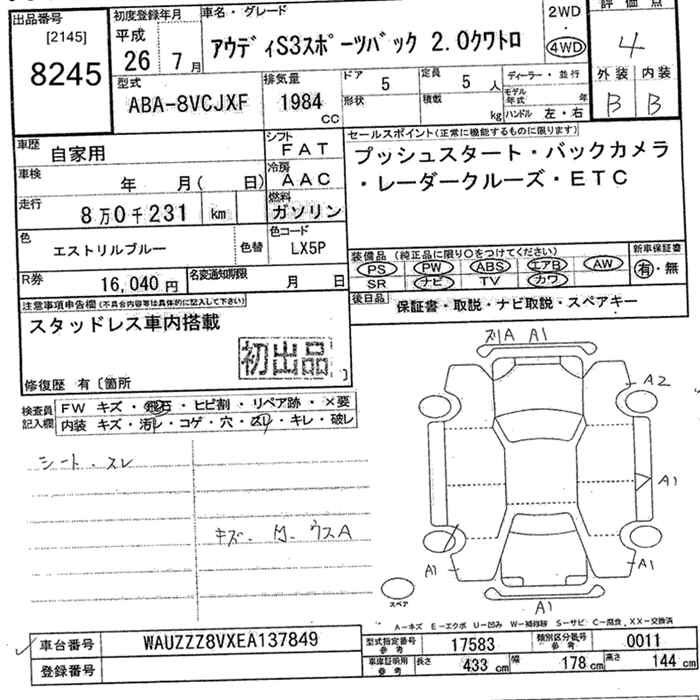 出品番号
[2145]
8245
初度登録年月
平成
26年7月
車名・グレード
アウディS3スポーツバック 2.0クワトロ
2WD
・
4WD
評価点
4
外装 内装
B B
型式
ABA-8VCJXF
排気量
1984
CC
ドア 5
定員 5 人
形状
積載 kg
ディーラー・並行
モデル年式 年
ハンドル 左・右
車歴
自家用
シフト
FAT
車検
年 月( 日)
冷房
AAC
走行
8万0千231 km
燃料
ガソリン
色
エストリルブルー
色替
色コード
LX5P
R券
16,040円
名変通知期限
月 日
セールスポイント(正常に機能するものに限ります)
プッシュスタート・バックカメラ
・レーダークルーズ・ETC
装備品 (純正品に限り○をつけてください)
PS PW ABS エアB AW
SR ナビ TV カワ
新車保証書
有・無
後日品
保証書・取説・ナビ取説・スペアキー
注意事項申告欄(不具合内容等は具体的に記入して下さい)
スタッドレス車内搭載
初出品
修復歴 有〔箇所 〕
検査員記入欄
FW キズ・飛石・ヒビ割・リペア跡・×要
内装 キズ・汚レ・コゲ・穴・スレ・キレ・破レ
シート・スレ
キズ・凹・ウスA
A1
A2
A1
A1
A1
A1
スペア
A-キズ E-エクボ U-凹み W-補修跡 S-サビ C-腐食 XX-交換済
車台番号
WAUZZZ8VXEA137849
型式指定番号
参考
17583
類別区分番号
参考
0011
登録番号
車庫証明用
参考
長さ 433 cm 幅 178 cm 高さ 144 cm